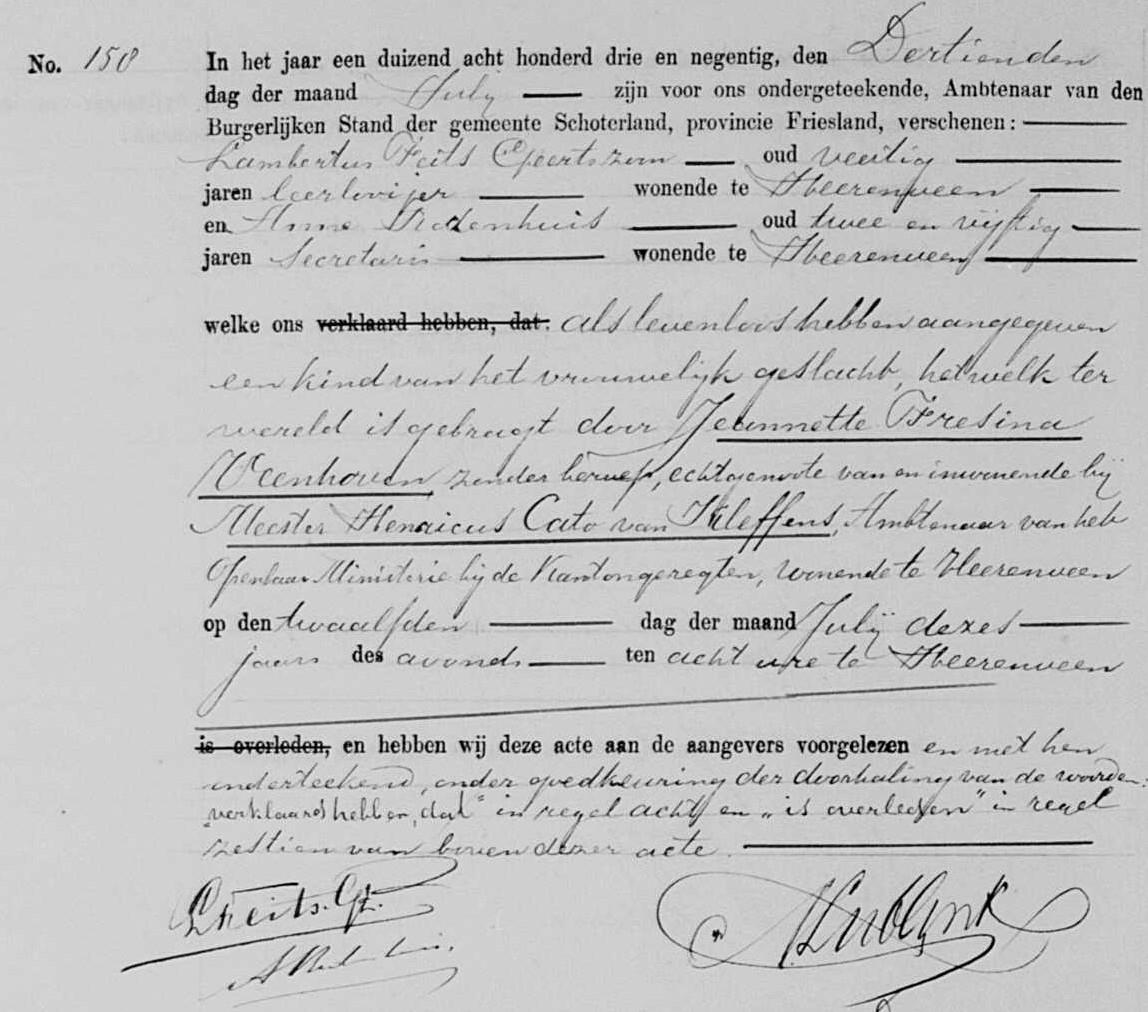 No. 158 In het jaar een duizend acht honderd drie en negentig, den Dertienden
dag der maand July zijn voor ons ondergeteekende, Ambtenaar van den
Burgerlijken Stand der gemeente Schoterland, provincie Friesland, verschenen:
Lambertus Feits Epeertszoon oud veertig
jaren leerlooijer wonende te Heerenveen
en Anne oud twee en vijftig
jaren Secretaris wonende te Heerenveen
welke ons verklaard hebben, dat: als levenloos hebben aangegeven
een kind van het vrouwelijk geslacht, hetwelk ter
wereld is gebragt door Jeannette Fresina
Veenhoven zonder beroep, echtgenoote van en inwonende bij
Meester Henricus Cato van Kleffens, Ambtenaar van het
Openbaar Ministerie bij de Kantongeregten, wonende te Heerenveen
op den twaalfden dag der maand Julij dezes
jaars des avonds ten acht ure te Heerenveen
is overleden, en hebben wij deze acte aan de aangevers voorgelezen en met hen
onderteekend, onder goedkeuring der doorhaling van de woorden:
"verklaard hebben, dat" in regel acht en "is overleden" in regel
zestien van boven dezer acte.
LFeits.